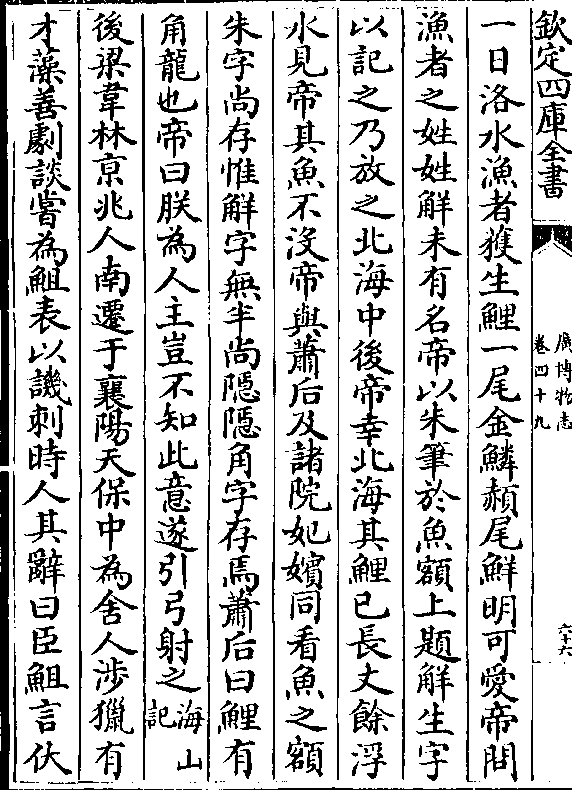 欽定四庫全書
廣博物志
卷四十九
六十六
一日洛水漁者獲生鯉一尾金鱗赬尾鮮明可愛帝問
漁者之姓姓解未有名帝以朱筆於魚額上題解生字
以記之乃放之北海中後帝幸北海其鯉已長丈餘浮
水見帝其魚不沒帝與蕭后及諸院妃嬪同看魚之額
朱字尚存惟解字無半尚隠隠角字存焉蕭后曰鯉有
角龍也帝曰朕為人主豈不知此意遂引弓射之海山記
後梁韋林京兆人南遷于襄陽天保中為舍人渉獵有
才藻善劇談嘗為䱇表以譏刺時人其辭曰臣䱇言伏